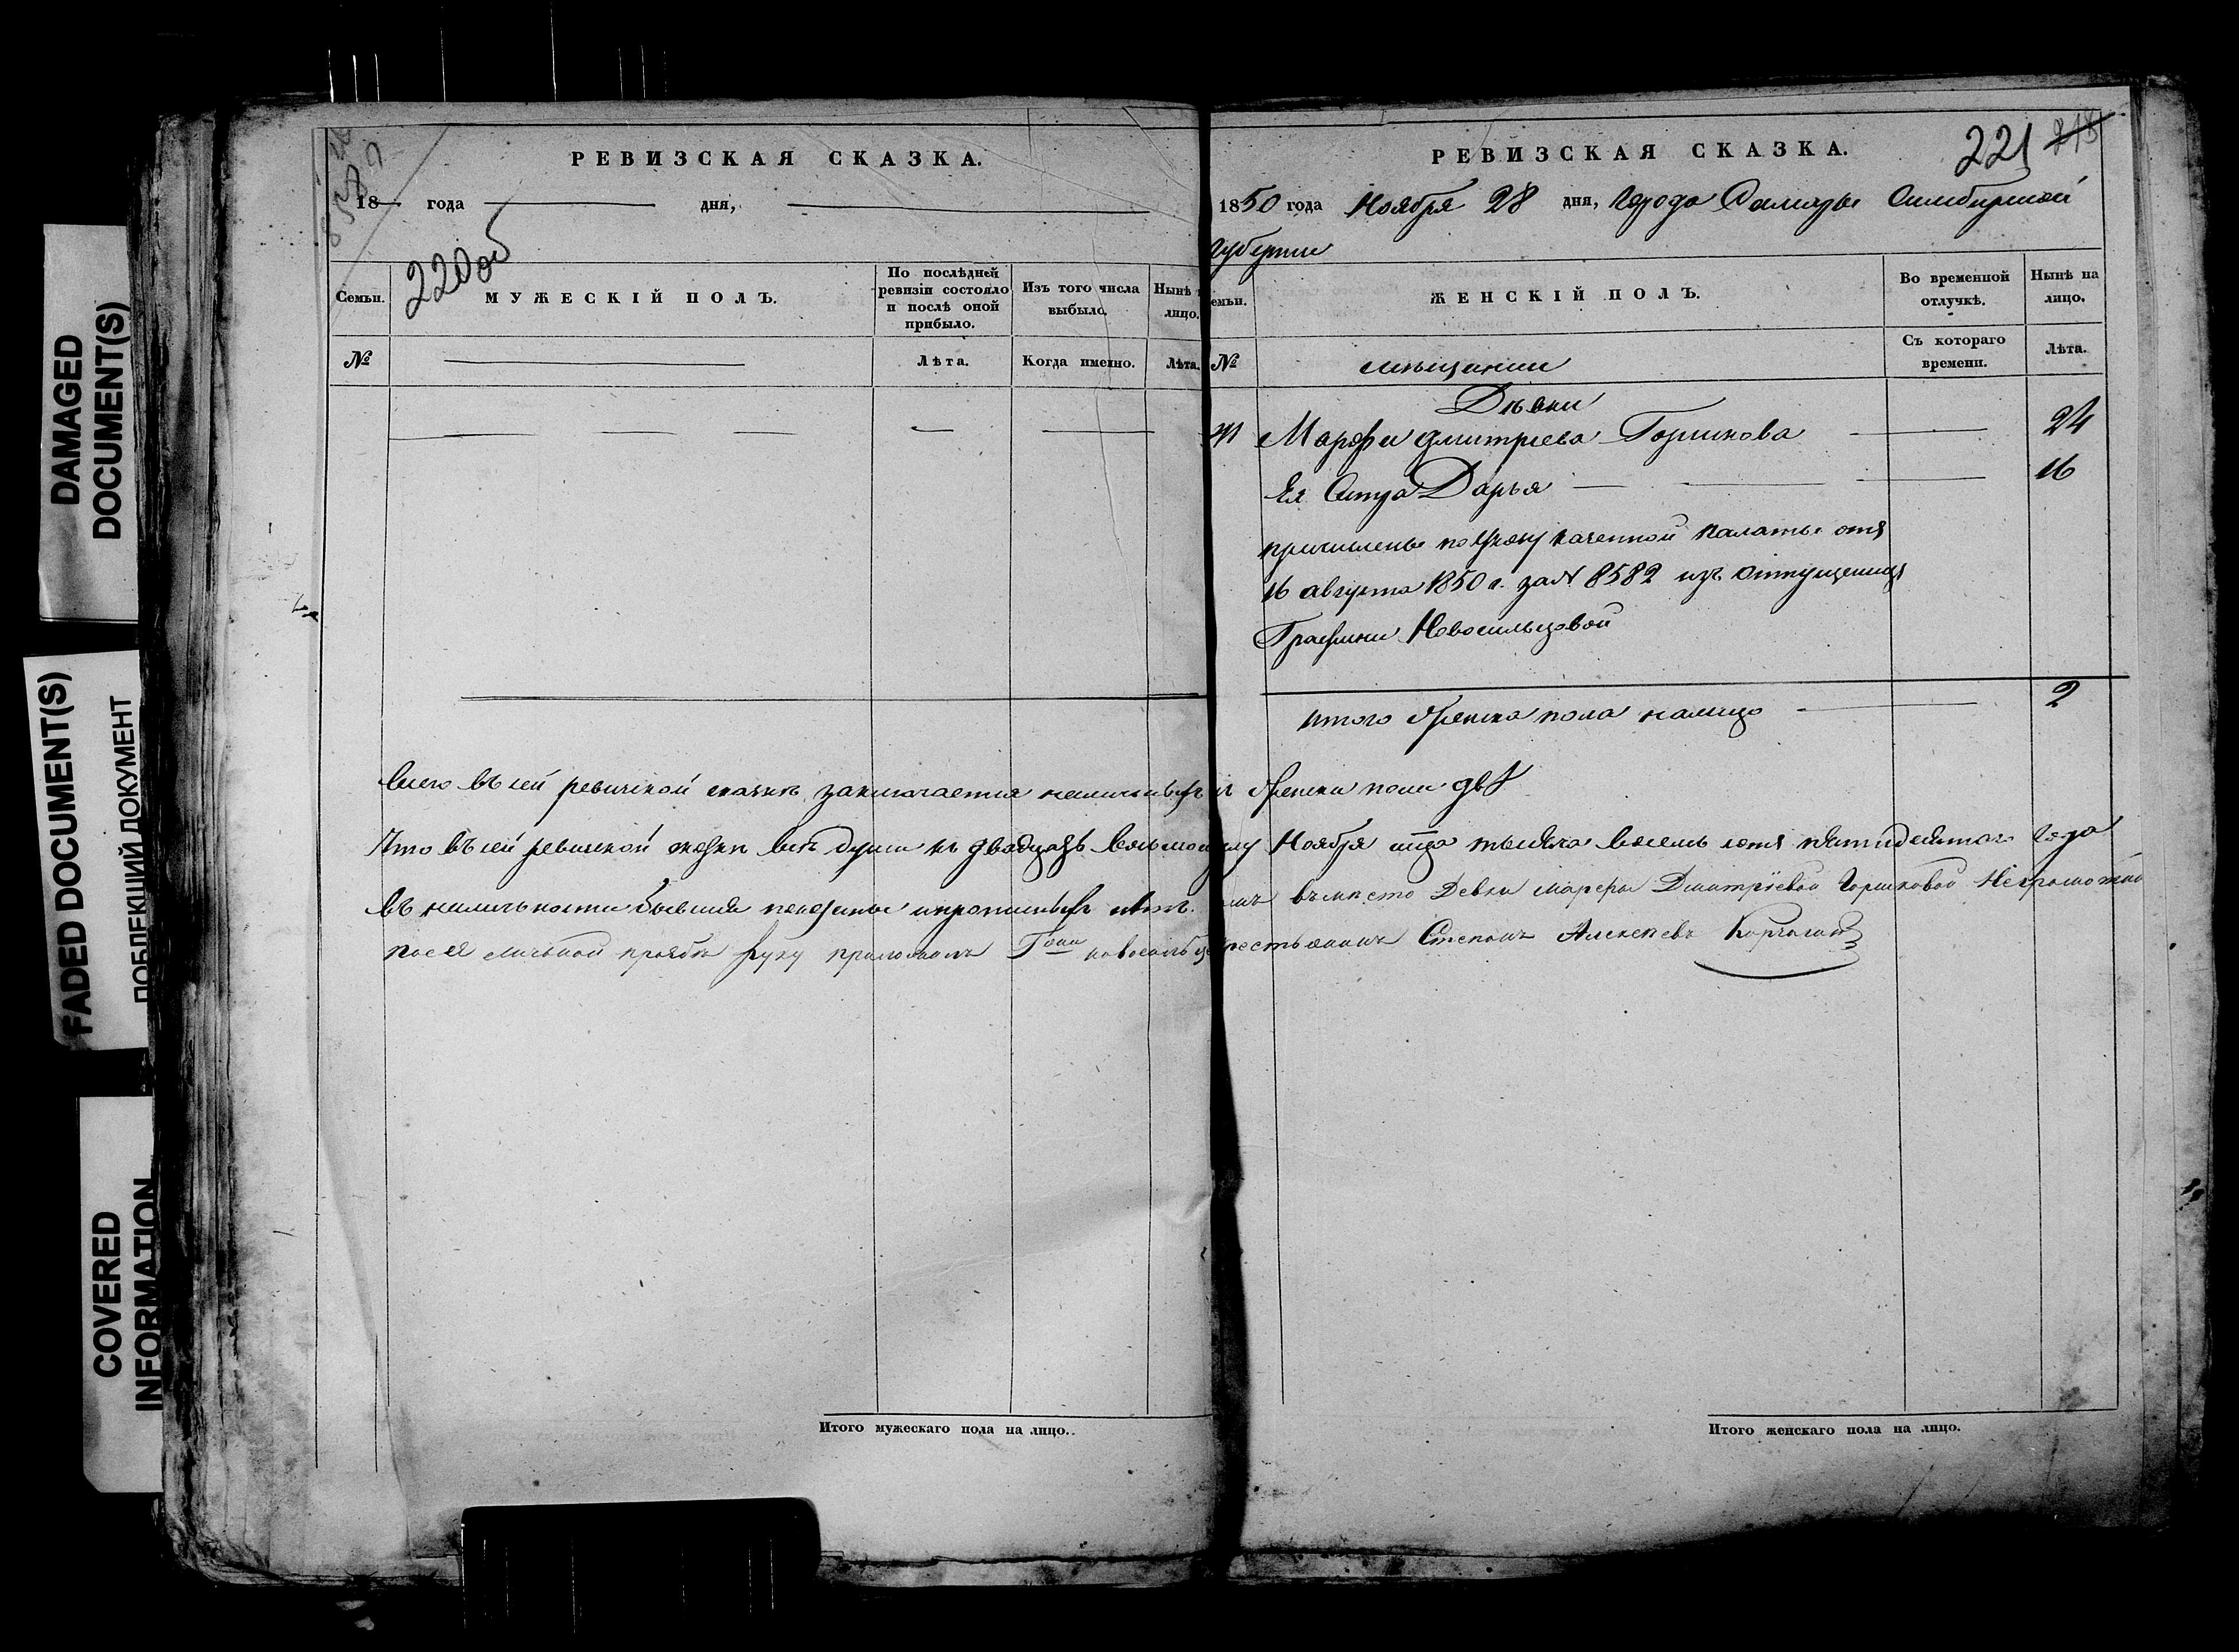 DAMAGED
DOCUMENT(S)
FADED DOCUMENT(S)
ПОБЛЕКШИЙ ДОКУМЕНТ
COVERED
INFORMATION
РЕВИЗСКАЯ СКАЗКА.
18— года — дня,
220об
Семьи.
МУЖЕСКІЙ ПОЛЪ.
По послѣдней
ревизіи состояло
и послѣ оной
прибыло.
Изъ того числа
выбыло.
Нынѣ
лицо.
№
Лѣта.
Когда именно.
Лѣта.
Итого мужескаго пола на лицо.
РЕВИЗСКАЯ СКАЗКА.
221 218
1850 года Ноября 28 дня, города Самары Симбирской
губернии
емьи.
ЖЕНСКІЙ ПОЛЪ.
Во временной
отлучкѣ.
Нынѣ на
лицо.
№
Съ котораго
времени.
Лѣта.
Дѣвки
Марфа Дмитриева Горшкова 24
Ея Сестра Дарья 16
причислены по указу казенной палаты отъ
16 августа 1850 г. за № 8582 изъ отпущенныхъ
Графини Новосильцовой
Итого женска пола налицо 2
Всего въ сей ревизской сказкѣ заключается наличныхъ женска пола двѣ
Что въ сей ревизской сказкѣ всѣ души къ двадцать восьмому Ноября тысяча восемь сотъ пятидесятаго года
въ наличности бывшия показаны и пропишныхъ нѣтъ. въмѣсто Девки Марфы Дмитріевой Горшковой Неграмотной
по ея личьной прозбѣ руку приложилъ крестьянинъ Степанъ Алексѣевъ
Итого женскаго пола на лицо.